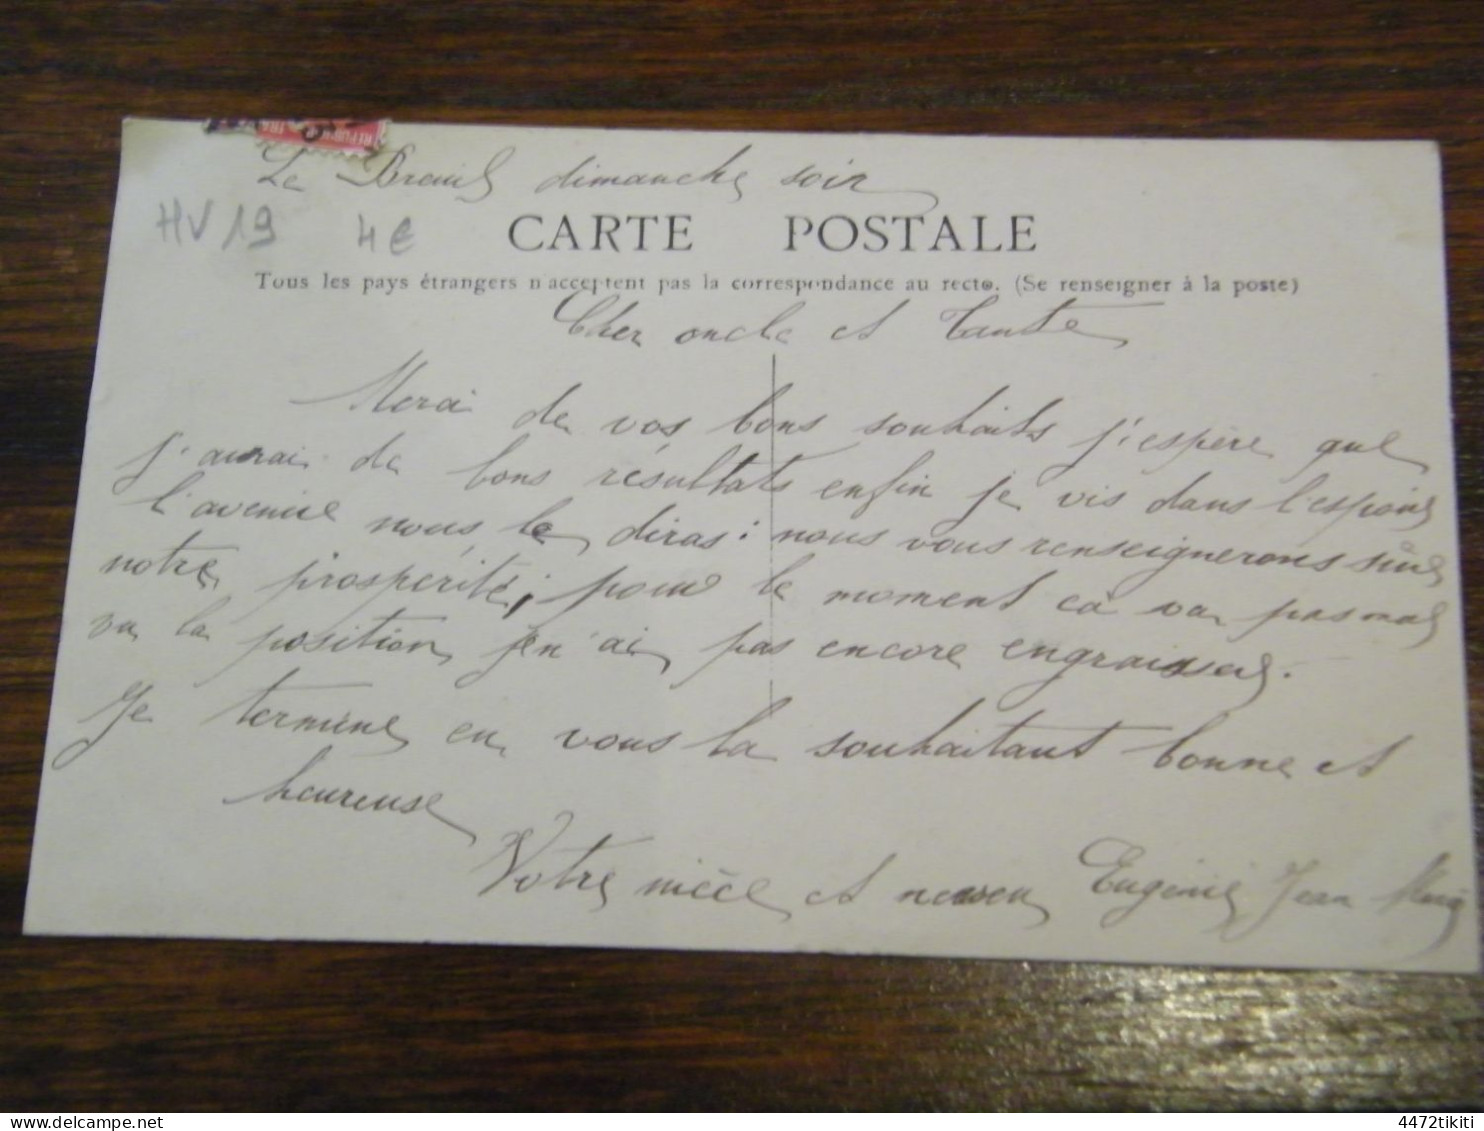 Le Breuil dimanche soir
HV19 4€
CARTE POSTALE
Tous les pays étrangers n'acceptent pas la correspondance au recto. (Se renseigner à la poste)
Cher oncle et Tante
Merci de vos bons souhaits j'espère que
j'aurai de bons résultats enfin je vis dans l'espoir
l'avenir nous le diras : nous vous renseignerons sur
notre prospérité, pour le moment ça va pas mal
vu la position je n'ai pas encore engraisser.
Je termine en vous la souhaitant bonne et
heureuse
Votre nièce et neveu Eugénie Jean
4472tikiti